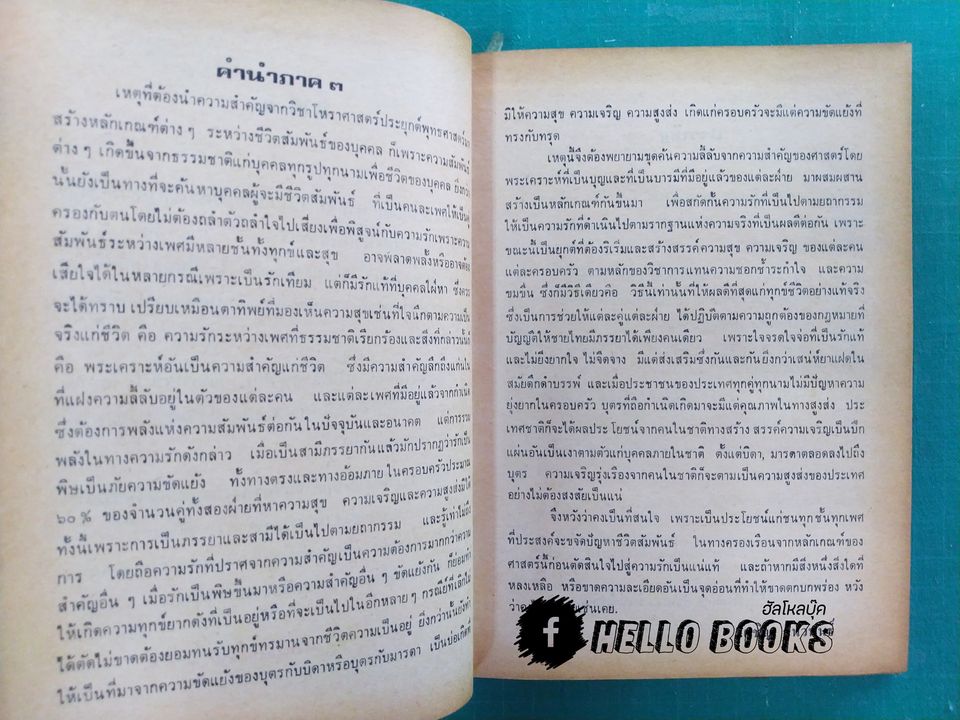 คำนำภาค ๓
เหตุที่ต้องนำความสำคัญจากวิชาโหราศาสตร์ประยุกต์พุทธศาสตร์มา
สร้างหลักเกณฑ์ต่าง ๆ ระหว่างชีวิตสัมพันธ์ของบุคคล ก็เพราะความสัมพันธ์
ต่าง ๆ เกิดขึ้นจากธรรมชาติแก่บุคคลทุกรูปทุกนามเพื่อชีวิตของบุคคล ยิ่งกว่า
นั้นยังเป็นทางที่จะค้นหาบุคคลผู้จะมีชีวิตสัมพันธ์ ที่เป็นคนละเพศให้เป็น
ครองกับตนโดยไม่ต้องถลำตัวถลำใจไปเสี่ยงเพื่อพิสูจน์กับความรักเพราะความ
สัมพันธ์ระหว่างเพศมีหลายชั้นทั้งทุกข์และสุข อาจพลาดพลั้งหรืออาจ
เสียใจได้ในหลายกรณีเพราะเป็นรักเทียม แต่ก็มีรักแท้ที่บุคคลใฝ่หา ซึ่งควร
จะได้ทราบ เปรียบเหมือนตาทิพย์ที่มองเห็นความสุขเช่นที่ใจนึกตามความเป็น
จริงแก่ชีวิต คือ ความรักระหว่างเพศที่ธรรมชาติเรียกร้องและสิ่งที่กล่าวนั้นก็
คือ พระเคราะห์อันเป็นความสำคัญแก่ชีวิต ซึ่งมีความสำคัญลึกถึงแก่นใน
ที่แฝงความลี้ลับอยู่ในตัวของแต่ละคน และแต่ละเพศที่มีอยู่แล้วจากกำเนิด
ซึ่งต้องการพลังแห่งความสัมพันธ์ต่อกันในปัจจุบันและอนาคต แต่การรวม
พลังในทางความรักดังกล่าว เมื่อเป็นสามีภรรยากันแล้วมักปรากฏว่ารักเป็น
พิษเป็นภัยความขัดแย้ง ทั้งทางตรงและทางอ้อมภายในครอบครัวประมาณ
๖๐ % ของจำนวนคู่ทั้งสองฝ่ายที่หาความสุข ความเจริญและความสูงส่งมิได้
ทั้งนี้เพราะการเป็นภรรยาและสามีได้เป็นไปตามยถากรรม และรู้เท่าไม่ถึง
การ โดยถือความรักที่ปราศจากความสำคัญเป็นความต้องการมากกว่าความ
สำคัญอื่น ๆ เมื่อรักเป็นพิษขึ้นมาหรือความสำคัญอื่น ๆ ขัดแย้งกัน ก็ย่อมทำ
ให้เกิดความทุกข์ยากดังที่เป็นอยู่หรือที่จะเป็นไปในอีกหลายๆ กรณีย์ที่เลิกไม่
ได้ตัดไม่ขาดต้องยอมทนรับทุกข์ทรมานจากชีวิตความเป็นอยู่ ยิ่งกว่านั้นยังทำ
ให้เป็นที่มาจากความขัดแย้งของบุตรกับบิดาหรือบุตรกับมารดา เป็นบ่อเกิดที่
มิให้ความสุข ความเจริญ ความสูงส่ง เกิดแก่ครอบครัวจะมีแต่ความขัดแย้งที่
ทรงกับทรุด
เหตุนี้จึงต้องพยายามขุดค้นความลี้ลับจากความสำคัญของศาสตร์โดย
พระเคราะห์ที่เป็นบุญและที่เป็นบารมีที่มีอยู่แล้วของแต่ละฝ่าย มาผสมผสาน
สร้างเป็นหลักเกณฑ์กันขึ้นมา เพื่อสกัดกั้นความรักที่เป็นไปตามยถากรรม
ให้เป็นความรักที่ดำเนินไปตามรากฐานแห่งความจริงที่เป็นผลดีต่อกัน เพราะ
ขณะนี้เป็นยุคที่ต้องริเริ่มและสร้างสรรค์ความสุข ความเจริญ ของแต่ละคน
แต่ละครอบครัว ตามหลักของวิชาการแทนความชอกช้ำระกำใจ และความ
ขมขื่น ซึ่งก็มีวิธีเดียวคือ วิธีนี้เท่านั้นที่ให้ผลดีที่สุดแก่ทุกชีวิตอย่างแท้จริง
ซึ่งเป็นการช่วยให้แต่ละคู่แต่ละฝ่าย ได้ปฏิบัติตามความถูกต้องของกฎหมายที่
บัญญัติให้ชายไทยมีภรรยาได้เพียงคนเดียว เพราะใจจรดใจจ่อที่เป็นรักแท้
และไม่ยิ่งยากใจ ไม่จืดจาง มีแต่ส่งเสริมซึ่งกันและกันยิ่งกว่าเสน่ห์ยาแฝดใน
สมัยดึกดำบรรพ์ และเมื่อประชาชนของประเทศทุกคู่ทุกนามไม่มีปัญหาความ
ยุ่งยากในครอบครัว บุตรที่ถือกำเนิดเกิดมาจะมีแต่คุณภาพในทางสูงส่ง ประ
เทศชาติก็จะได้ผลประโยชน์จากคนในชาติทางสร้างสรรค์ความเจริญเป็นปึก
แผ่นอันเป็นเงาตามตัวแก่บุคคลภายในชาติ ตั้งแต่บิดา, มารดาตลอดลงไปถึง
บุตร ความเจริญรุ่งเรืองจากคนในชาติก็จะตามเป็นความสูงส่งของประเทศ
อย่างไม่ต้องสงสัยเป็นแน่
จึงหวังว่าคงเป็นที่สนใจ เพราะเป็นประโยชน์แก่ชนทุกชั้นทุกเพศ
ที่ประสงค์จะขจัดปัญหาชีวิตสัมพันธ์ ในทางครองเรือนจากหลักเกณฑ์ของ
ศาสตร์นี้ก่อนตัดสินใจไปสู่ความรักเป็นแน่แท้ และถ้าหากมีสิ่งหนึ่งสิ่งใดที่
หลงเหลือ หรือขาดความละเอียดอันเป็นจุดอ่อนที่ทำให้ขาดตกบกพร่อง หวัง
เช่นเคย.
ฮัลโหลบุ๊ค
f HELLO BOOKS